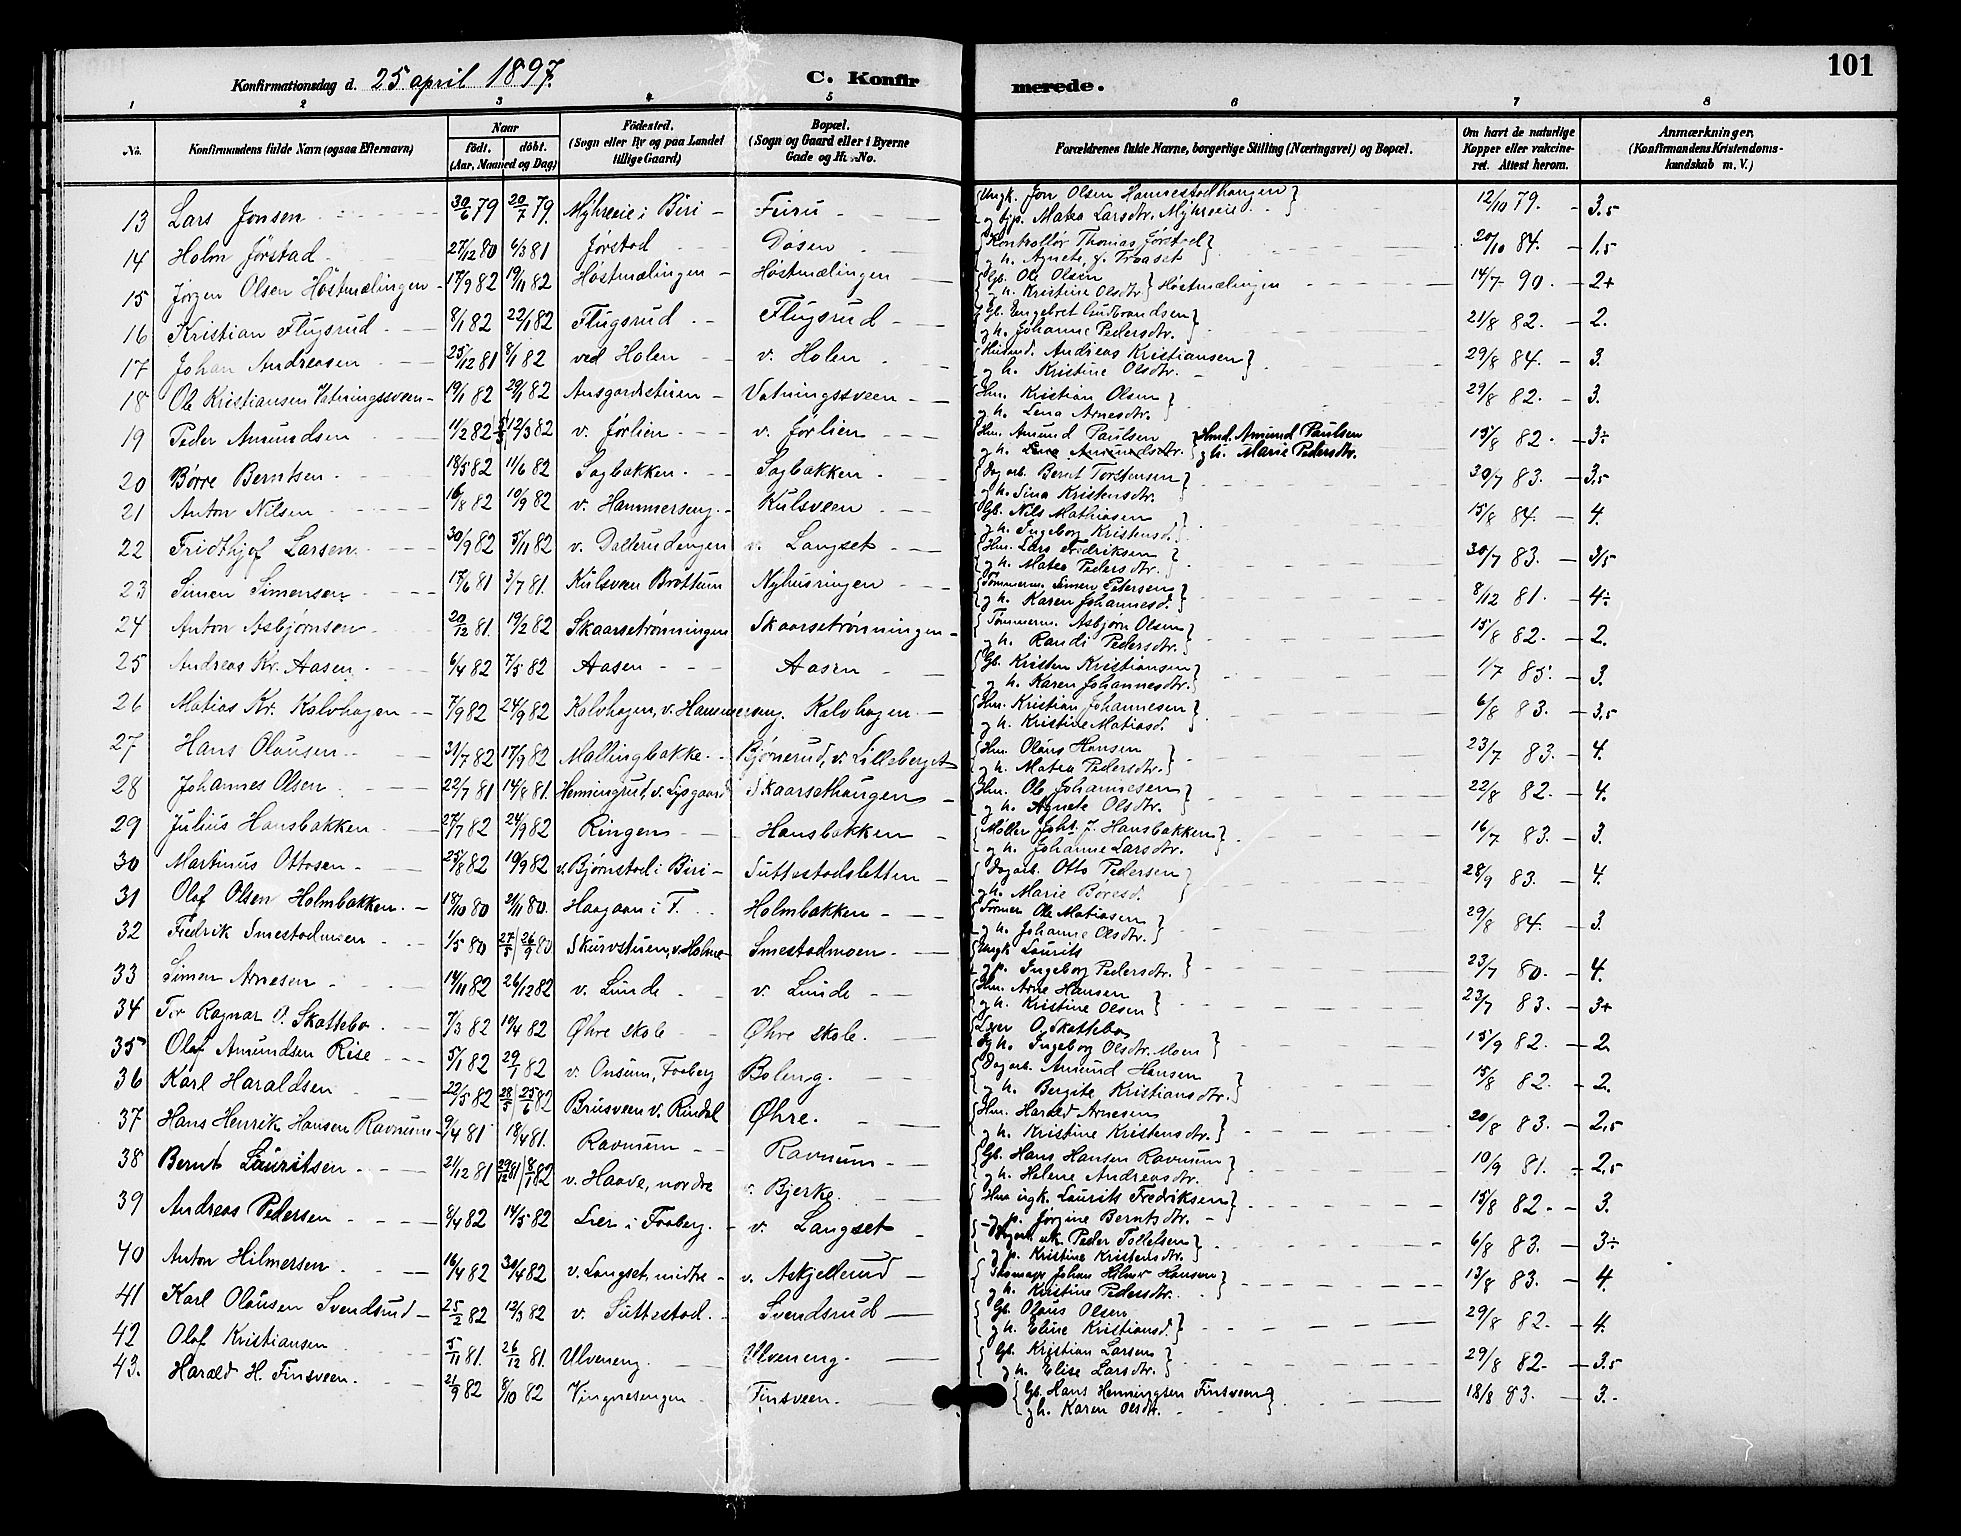 101
Konfirmationsdag d. 25 april 1897.
C. Konfirmerede.
1 2 3 4 5 6 7 8
No. Konfirmandens fulde Navn (ogsaa Efternavn) Naar födt. döbt. (Aar, Maaned og Dag) Födested. (Sogn eller By og paa Landet tillige Gaard) Bopæl. (Sogn og Gaard eller i Byerne Gade og H.-No. Forældrenes fulde Navne, borgerlige Stilling (Næringsvei) og Bopæl. Om havt de naturlige Kopper eller vakcineret. Attest herom. Anmærkninger. (Konfirmandens Kristendomskundskab m. V.)
13 Lars Jonsen 30/6 79 20/7 79. Myhreeie i Biri Furu {Ungk. Jon Olsen Hammestadhaugen og pige Matea Larsdtr. Myhreeie} 12/10 79. 3,5
14 Holm Jørstad 27/12 80 6/3 81 Jørstad Døsen {Kontrollør Thomas Jørstad og h. Agnete, f. Traaset} 20/10 84. 1,5
15 Jørgen Olsen Høstmælingen 17/9 82 19/11 82 Høstmælingen Høstmælingen {Gb. Ole Olsen og h. Kristine Olsdtr.} Høstmælingen 14/7 90. 2+
16 Kristian Flugsrud 8/1 82 22/1 82 Flugsrud Flugsrud {Gb. Engebret Gudbrandsen og h. Johanne Pedersdtr.} 21/8 82. 2.
17 Johan Andreasen 25/12 81 8/1 82 ved Holen v. Holen {Husmd. Andreas Kristiansen og h. Kristine Olsdtr.} 29/8 84. 3.
18 Ole Kristiansen Vatningssveen 19/1 82 29/1 82 Ansgardstuen Vatningssveen {Hm. Kristian Olsen og h. Lena Arnesdtr.} 29/8 82. 3.
19 Peder Amundsen 11/2 82 5/3 12/3 82 v. Jørlien v. Jørlien {Hm. Amund Paulsen og h. Lena Amundsdtr. {Hmd. Amund Paulsen og h. Marie Pedersdtr. 15/8 82. 3÷
20 Børre Berntsen 18/5 82 11/6 82 Sagbakken Sagbakken {Dagarb. Bernt Torstensen og h. Sina Kristensdtr.} 30/7 83. 3,5
21 Anton Nilsen 16/8 82 10/9 82 v. Hammerseng Kulsveen {Gb. Nils Mathiasen og h. Ingeborg Kristensd.} 15/8 84. 4.
22 Fridthjof Larsen 30/9 82 5/11 82 v. Dallerudengen v. Langset {Hm. Lars Fredriksen og h. Matea Pedersdtr.} 30/7 83. 3,5
23 Simen Simensen 17/6 81 3/7 81. Kulsveen Brøttum Nyhusringen {Tømmerm. Simen Petersen og h. Karen Johannesd.} 8/12 81. 4÷
24 Anton Asbjørnsen 20/12 81. 19/2 82 Skaarsetrønningen Skaarsetrønningen {Tømmerm. Asbjørn Olsen og h. Randi Pedersdtr.} 15/8 82. 2.
25 Andreas Kr. Aasen 6/4 82 7/5 82 Aasen Aasen {Gb. Kristen Kristiansen og h. Karen Johannesdtr.} 1/7 85. 3.
26 Matias Kr. Kalvhagen 7/9 82 24/9 82 Kalvhagen, v. Hammerseng. Kalvhagen {Hm. Kristian Johannesen og h. Kristine Matiasd.} 6/8 83. 3,5
27 Hans Olausen 31/7 82 17/9 82 Mallingbakke Bjønerud, v. Lilleberget {Hm. Olaus Hansen og h. Matea Pedersdtr.} 23/7 83. 4.
28 Johannes Olsen 22/7 81 14/8 81. Henningrud, v. Lysgaard Skaarsethaugen {Hm. Ole Johannesen og h. Agnete Olsdtr.} 22/8 82. 4.
29 Julius Hansbakken 27/7 82 24/9 82 Ringen Hansbakken {Møller Johs. J. Hansbakken og h. Johanne Larsdtr.} 16/7 83. 3.
30 Martinus Ottosen 25/8 82 10/9 82 v. Bjørnstad i Biri Suttestadsletten {Dagarb. Otto Pedersen og h. Marie Børesd.} 28/9 83. 4.
31 Olaf Olsen Holmbakken 18/10 80 21/11 80. Haagaar i F. Holmbakken {Tømmer Ole Matiasen og h. Johanne Olsdtr.} 29/8 84. 3.
32 Fredrik Smestadmoen 1/5 80 27/5 26/9 80 Skurvstuen, v. Holme Smestadmoen {Ungk. Laurits og p. Ingeborg Pedersdtr.} 23/7 80. 4.
33 Simen Arnesen 14/11 82 26/12 82 v. Lunde v. Lunde {Hm. Arne Hansen og h. Kristine Olsen} 23/7 83. 3+
34 Tor Ragnar O. Skattebo 7/3 82 10/4 82 Øhre skole Øhre skole {Lærer O. Skattebo og h. Ingeborg Olsdtr. Moen} 15/9 82. 2
35 Olaf Amundsen Rise 5/1 82 29/1 82 v. Onsum, Faaberg Boleng {Dagarb. Amund Hansen og h. Bergite Kristiansdtr.} 15/8 82. 2.
36 Karl Haraldsen 22/5 82 28/5 25/6 82 Brusveen v. Rindal Øhre. {Hm. Harald Arnesen og h. Kristine Kristensdtr.} 20/8 83. 2,5
37 Hans Henrik Hansen Ravnum 9/4 81 18/4 81. Ravnum Ravnum {Gb. Hans Hansen Ravnum og h. Helene Andreasdtr.} 10/9 81. 2,5
38 Bernt Lauritsen 21/12 81 29/12 81 8/1 82 v. Haave, nordre v. Bjerke {Hm ugk. Laurits Fredriksen og p. Jørgine Berntsdtr.} 15/8 82 3.
39 Andreas Pedersen 8/4 82 14/5 82 Lier i Faaberg v. Langset {Dagarb. uk. Peder Tollefsen og p. Kristine Kristensdtr.} 6/8 83. 3÷
40 Anton Hilmersen 16/4 82 30/4 82 v. Langset, midtre v. Askjellrud {Skomagr Johan Hilmer Hansen og h. Kristine Pedersdtr.} 13/8 83. 4.
41 Karl Olausen Svendsrud 25/2 82 12/3 82 v. Suttestad. Svendsrud {Gb. Olaus Olsen og h. Eline Kristiansd.} 29/8 82. 4.
42 Olaf Kristiansen 5/11 81. 26/12 81. Ulveneng. Ulveneng. {Gb. Kristian Larsen og h. Elise Larsdtr.} 29/8 82. 3,5
43. Harald H. Finsveen. 21/9 82 8/10 82 Vingnesengen Finsveen. {Gb. Hans Henningsen Finsveen og h. Karen Olsdtr.} 18/8 83. 3.